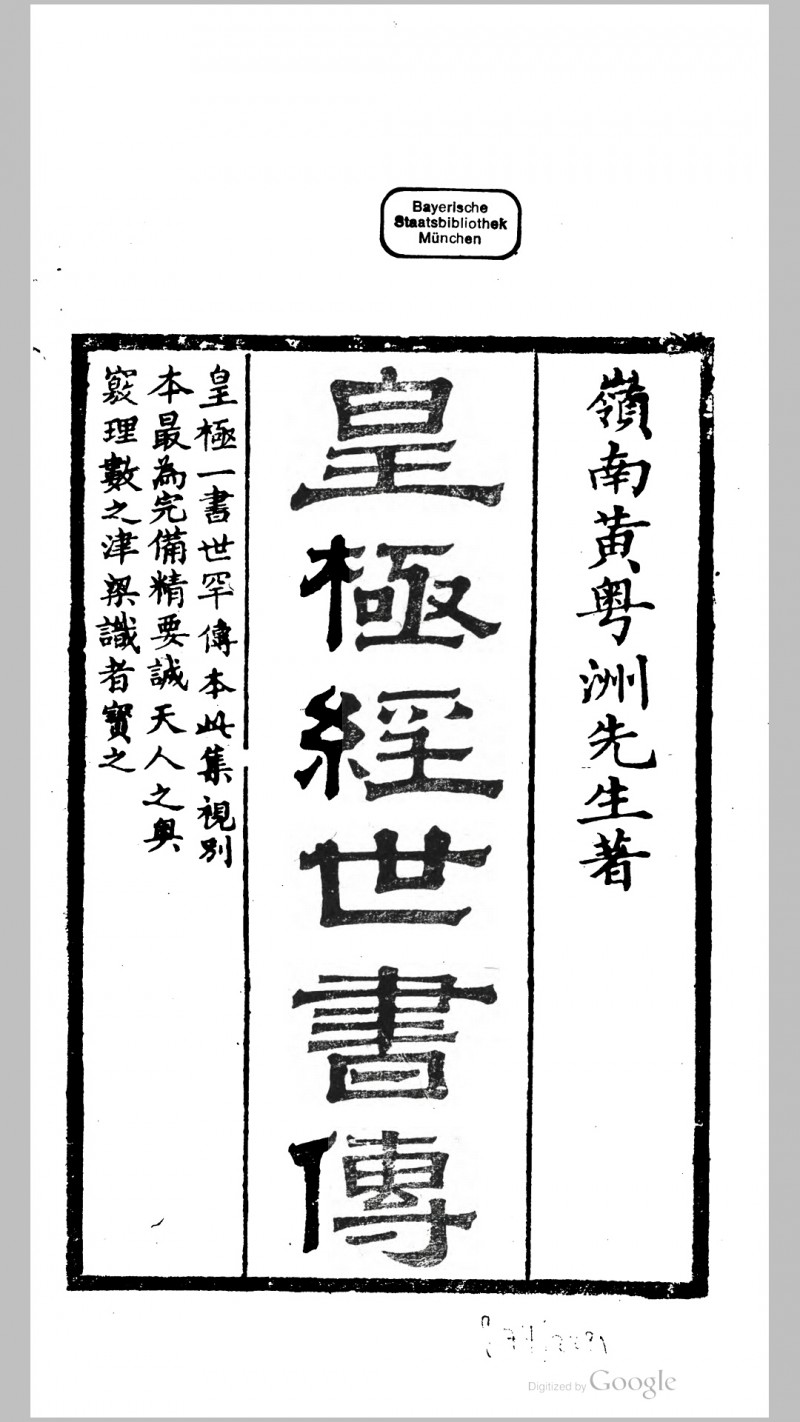 Bayerische
Staatsbibliothek
München
嶺南黃粤洲先生著
皇極經世書傳
皇極一書世罕傳本此集視別
本最為完備精要誠天人之奥
竅理數之津梁識者寶之
Digitized by Google